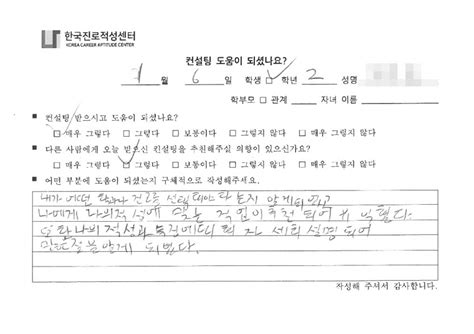 한국진로적성센터
KOREA CAREER APTITUDE CENTER
컨설팅 도움이 되셨나요?
1 월 6 일 학생 학년 2 성명
학부모 □ 관계 자녀 이름
■ 컨설팅 받으시고 도움이 되셨나요?
□ 매우 그렇다 □ 그렇다 □ 보통이다 □ 그렇지 않다 □ 매우 그렇지 않다
■ 다른 사람에게 오늘 받으신 컨설팅을 추천해주실 의향이 있으신가요?
□ 매우 그렇다 □ 그렇다 □ 보통이다 □ 그렇지 않다 □ 매우 그렇지 않다
■ 어떤 부분에 도움이 되셨는지 구체적으로 작성해주세요.
내가 어떤 진로를 선택 는지 알게되
나에게 나의 적성에 맞는 직업이 추천 되어
또 나의 적성과 자세히 설명 되어
알게 되었다.
작성해 주셔서 감사합니다.